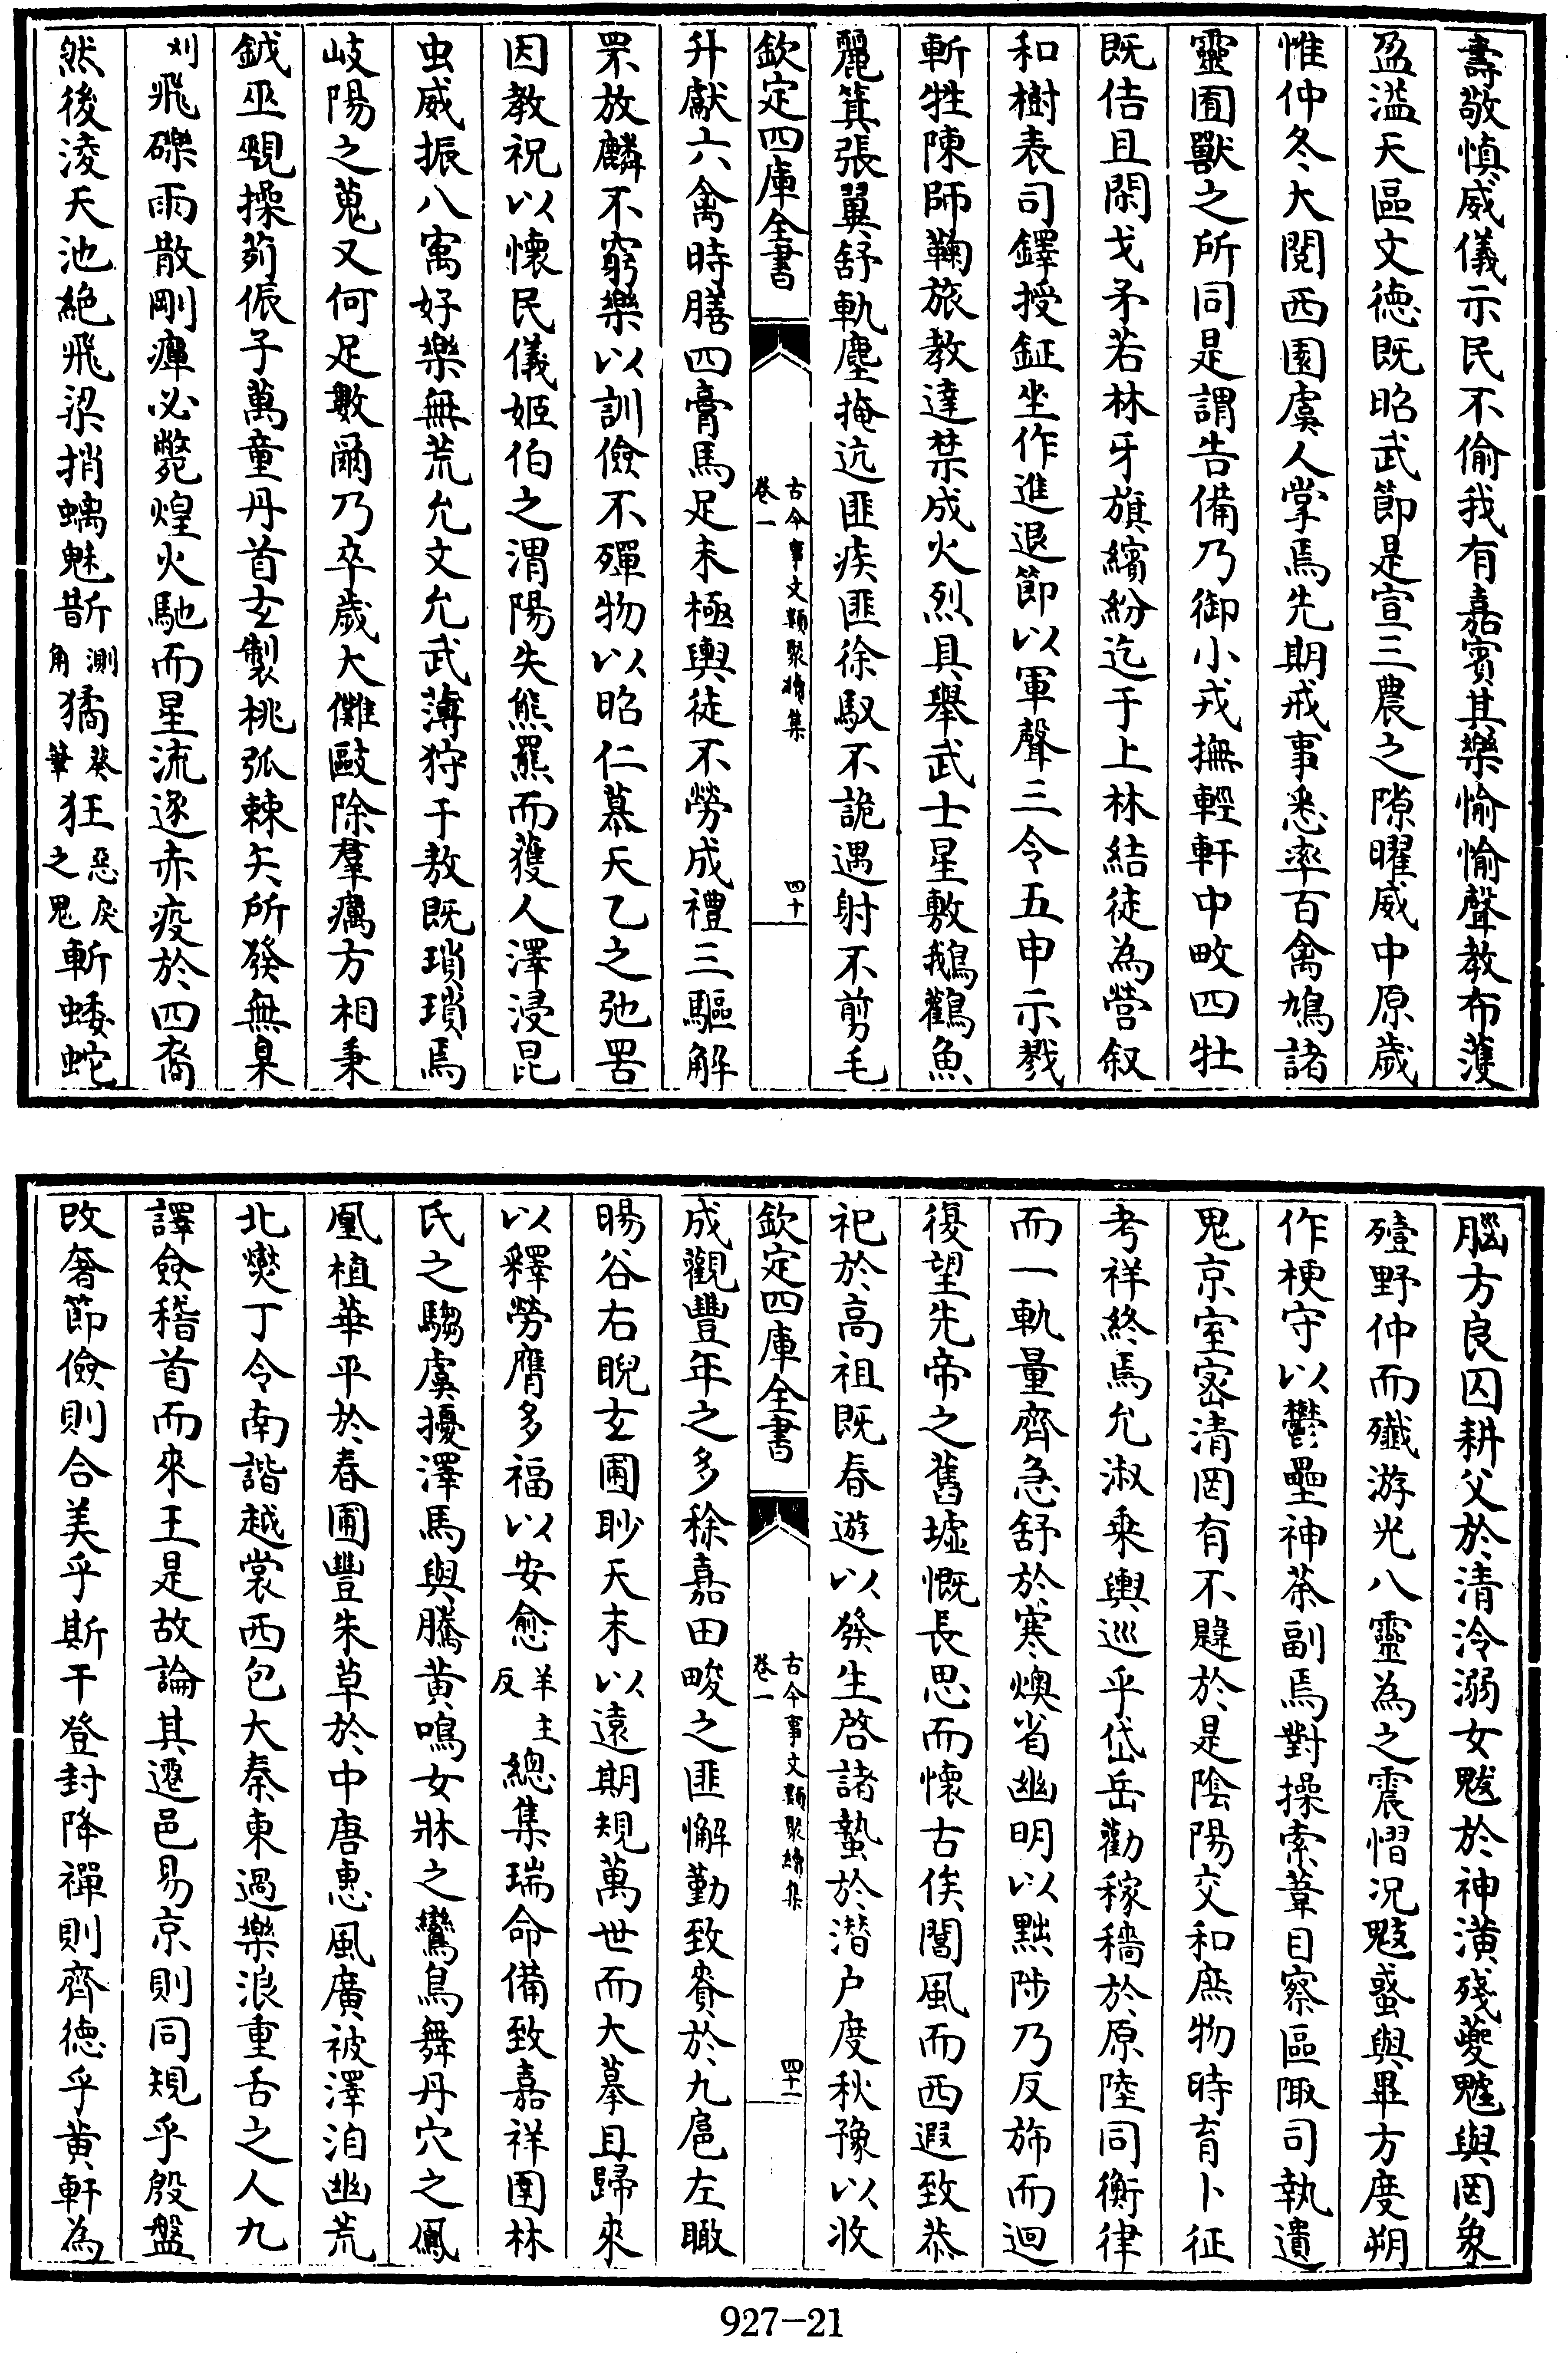 壽敬慎威儀示民不偷我有嘉賓其樂愉愉聲教布濩
盈溢天區文徳既昭武節是宣三農之隙曜威中原歲
惟仲冬大閱西園虞人掌焉先期戒事悉率百禽鳩諸
靈囿獸之所同是謂告備乃御小戎撫輕軒中畋四牡
既佶且閑戈矛若林牙旗繽紛迄于上林結徒為營叙
和樹表司鐸授鉦坐作進退節以軍聲三令五申示戮
斬牲陳師鞠旅教達禁成火烈具舉武士星敷鵝鸛魚
麗箕張翼舒軌塵掩迒匪疾匪徐馭不詭遇射不剪毛
欽定四庫全書
古今事文類聚續集
卷一
四十
升獻六禽時膳四膏馬足未極輿徒不勞成禮三驅解
罘放麟不窮樂以訓儉不殫物以昭仁慕天乙之弛罟
因教祝以懷民儀姬伯之渭陽失熊羆而獲人澤浸昆
虫威振八寓好樂無荒允文允武薄狩于敖既瑣瑣焉
岐陽之蒐又何足數爾乃卒歲大儺毆除羣癘方相秉
鉞巫覡操茢侲子萬童丹首玄製桃弧棘矢所發無臬
刈飛礫雨散剛癉必斃煌火馳而星流逐赤疫於四裔
然後淩天池絶飛梁捎螭魅斮測角獝葵筆狂惡戾之鬼斬蜲蛇
腦方良囚耕父於清泠溺女魃於神潢殘夔魖與罔象
殪野仲而殲游光八靈為之震慴況鬾蜮與畢方度朔
作梗守以鬱壘神荼副焉對操索葦目察區陬司執遺
鬼京室宻清罔有不韙於是陰陽交和庶物時育卜征
考祥終焉允淑乘輿巡乎岱岳勸稼穡於原陸同衡律
而一軌量齊急舒於寒燠省幽明以黜陟乃反斾而迴
復望先帝之舊墟慨長思而懷古俟閶風而西遐致恭
祀於高祖既春遊以發生啓諸蟄於潛户度秋豫以收
欽定四庫全書
古今事文類聚續集
卷一
四十一
成觀豐年之多稌嘉田畯之匪懈勤致賚於九扈左瞰
暘谷右睨玄圃眇天末以遠期規萬世而大摹且歸來
以釋勞膺多福以安愈羊主反總集瑞命備致嘉祥圉林
氏之騶虞擾澤馬與騰黄鳴女牀之鸞鳥舞丹穴之鳳
凰植華平於春圃豐朱草於中唐惠風廣被澤洎幽荒
北爕丁令南諧越裳西包大秦東過樂浪重舌之人九
譯僉稽首而來王是故論其遷邑易京則同規乎殷盤
改奢節儉則合美乎斯干登封降禪則齊徳乎黄軒為
927-21